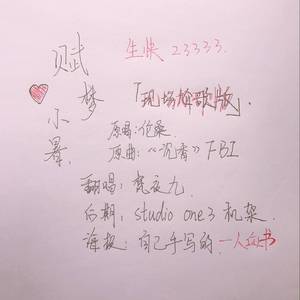 赋梦
生快 23333.
小暑
「现场尬歌版」.
原唱：伦桑
原曲：“沉香” FBI
翻唱：梵夜九
后期：studio one 3 机架.
海报：自己手写的.一人成书